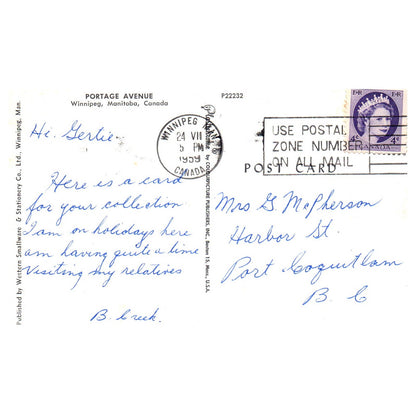 PORTAGE AVENUE
Winnipeg, Manitoba, Canada
P22232
Hi. Gertie.
Here is a card
for your collection
I am on holidays here
am having quite a time
Visiting my relatives
B. Creek.
Published by Western Smallware & Stationery Co., Ltd., Winnipeg, Man.
by COLOURPICTURE PUBLISHERS, INC., Boston 15, Mass., U.S.A.
WINNIPEG MAN.
24 VII
5 PM
1959
CANADA
USE POSTAL
ZONE NUMBER
ON ALL MAIL
E R E R
4¢ CANADA 4¢
POST CARD
Mrs G. McPherson
Harbor St.
Port Coquitlam
B. C